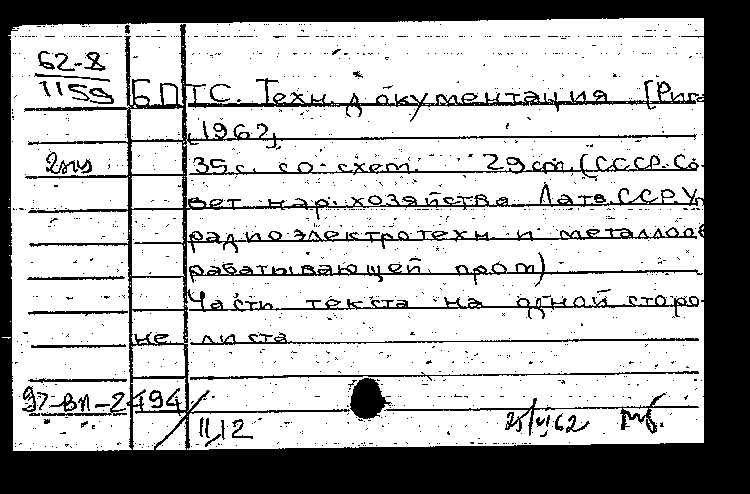 62-8
1159 БПТС. Техн. документация [Риг-
1962]
2 экз 35 с. со схем. 29 см. (СССР. Со-
вет нар. хозяйства Латв. ССР. Уп
радиоэлектротехн. и металлооб
рабатывающей пром)
Части текста на одной сторо-
не листа
97-вп-2494
11/12 25/VI 62